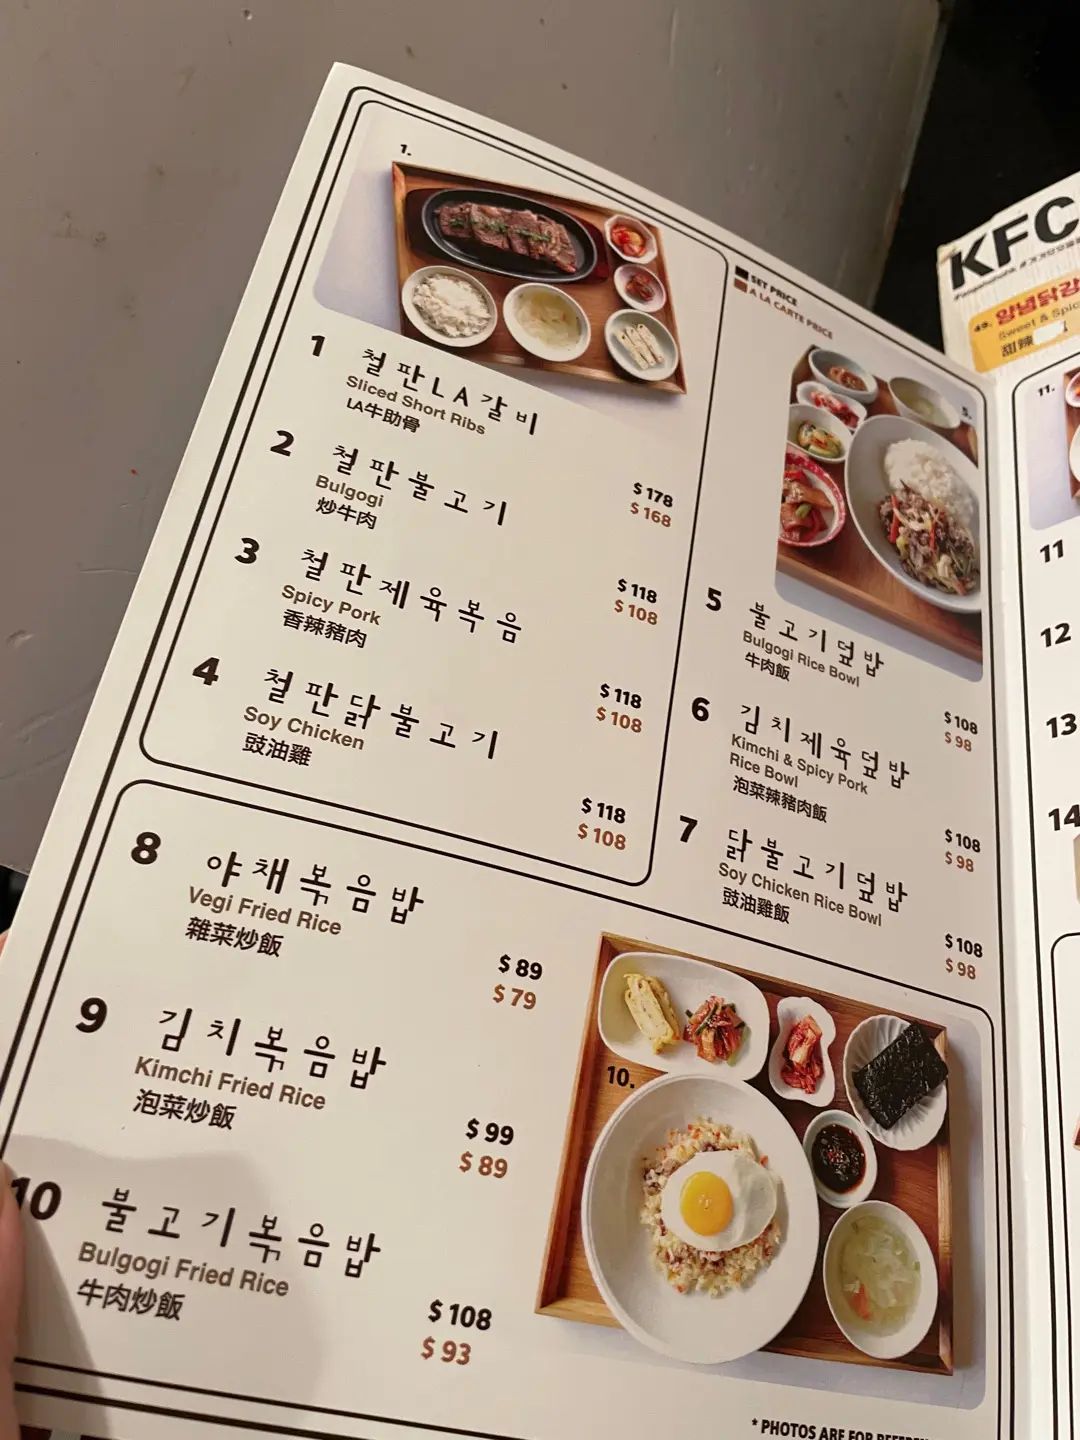 1.
1 철판LA갈비
Sliced Short Ribs
LA牛助骨
$178
$168
2 철판불고기
Bulgogi
炒牛肉
$118
$108
3 철판제육볶음
Spicy Pork
香辣豬肉
$118
$108
4 철판닭불고기
Soy Chicken
豉油雞
$118
$108
SET PRICE
A LA CARTE PRICE
5.
5 불고기덮밥
Bulgogi Rice Bowl
牛肉飯
$108
$98
6 김치제육덮밥
Kimchi & Spicy Pork
Rice Bowl
泡菜辣豬肉飯
$108
$98
7 닭불고기덮밥
Soy Chicken Rice Bowl
豉油雞飯
$108
$98
8 야채볶음밥
Vegi Fried Rice
雜菜炒飯
$89
$79
9 김치볶음밥
Kimchi Fried Rice
泡菜炒飯
$99
$89
10 불고기볶음밥
Bulgogi Fried Rice
牛肉炒飯
$108
$93
10.
* PHOTOS ARE FOR
KFC
49. 양념닭강
Sweet & Spic
甜辣
11.
11
12
13
14